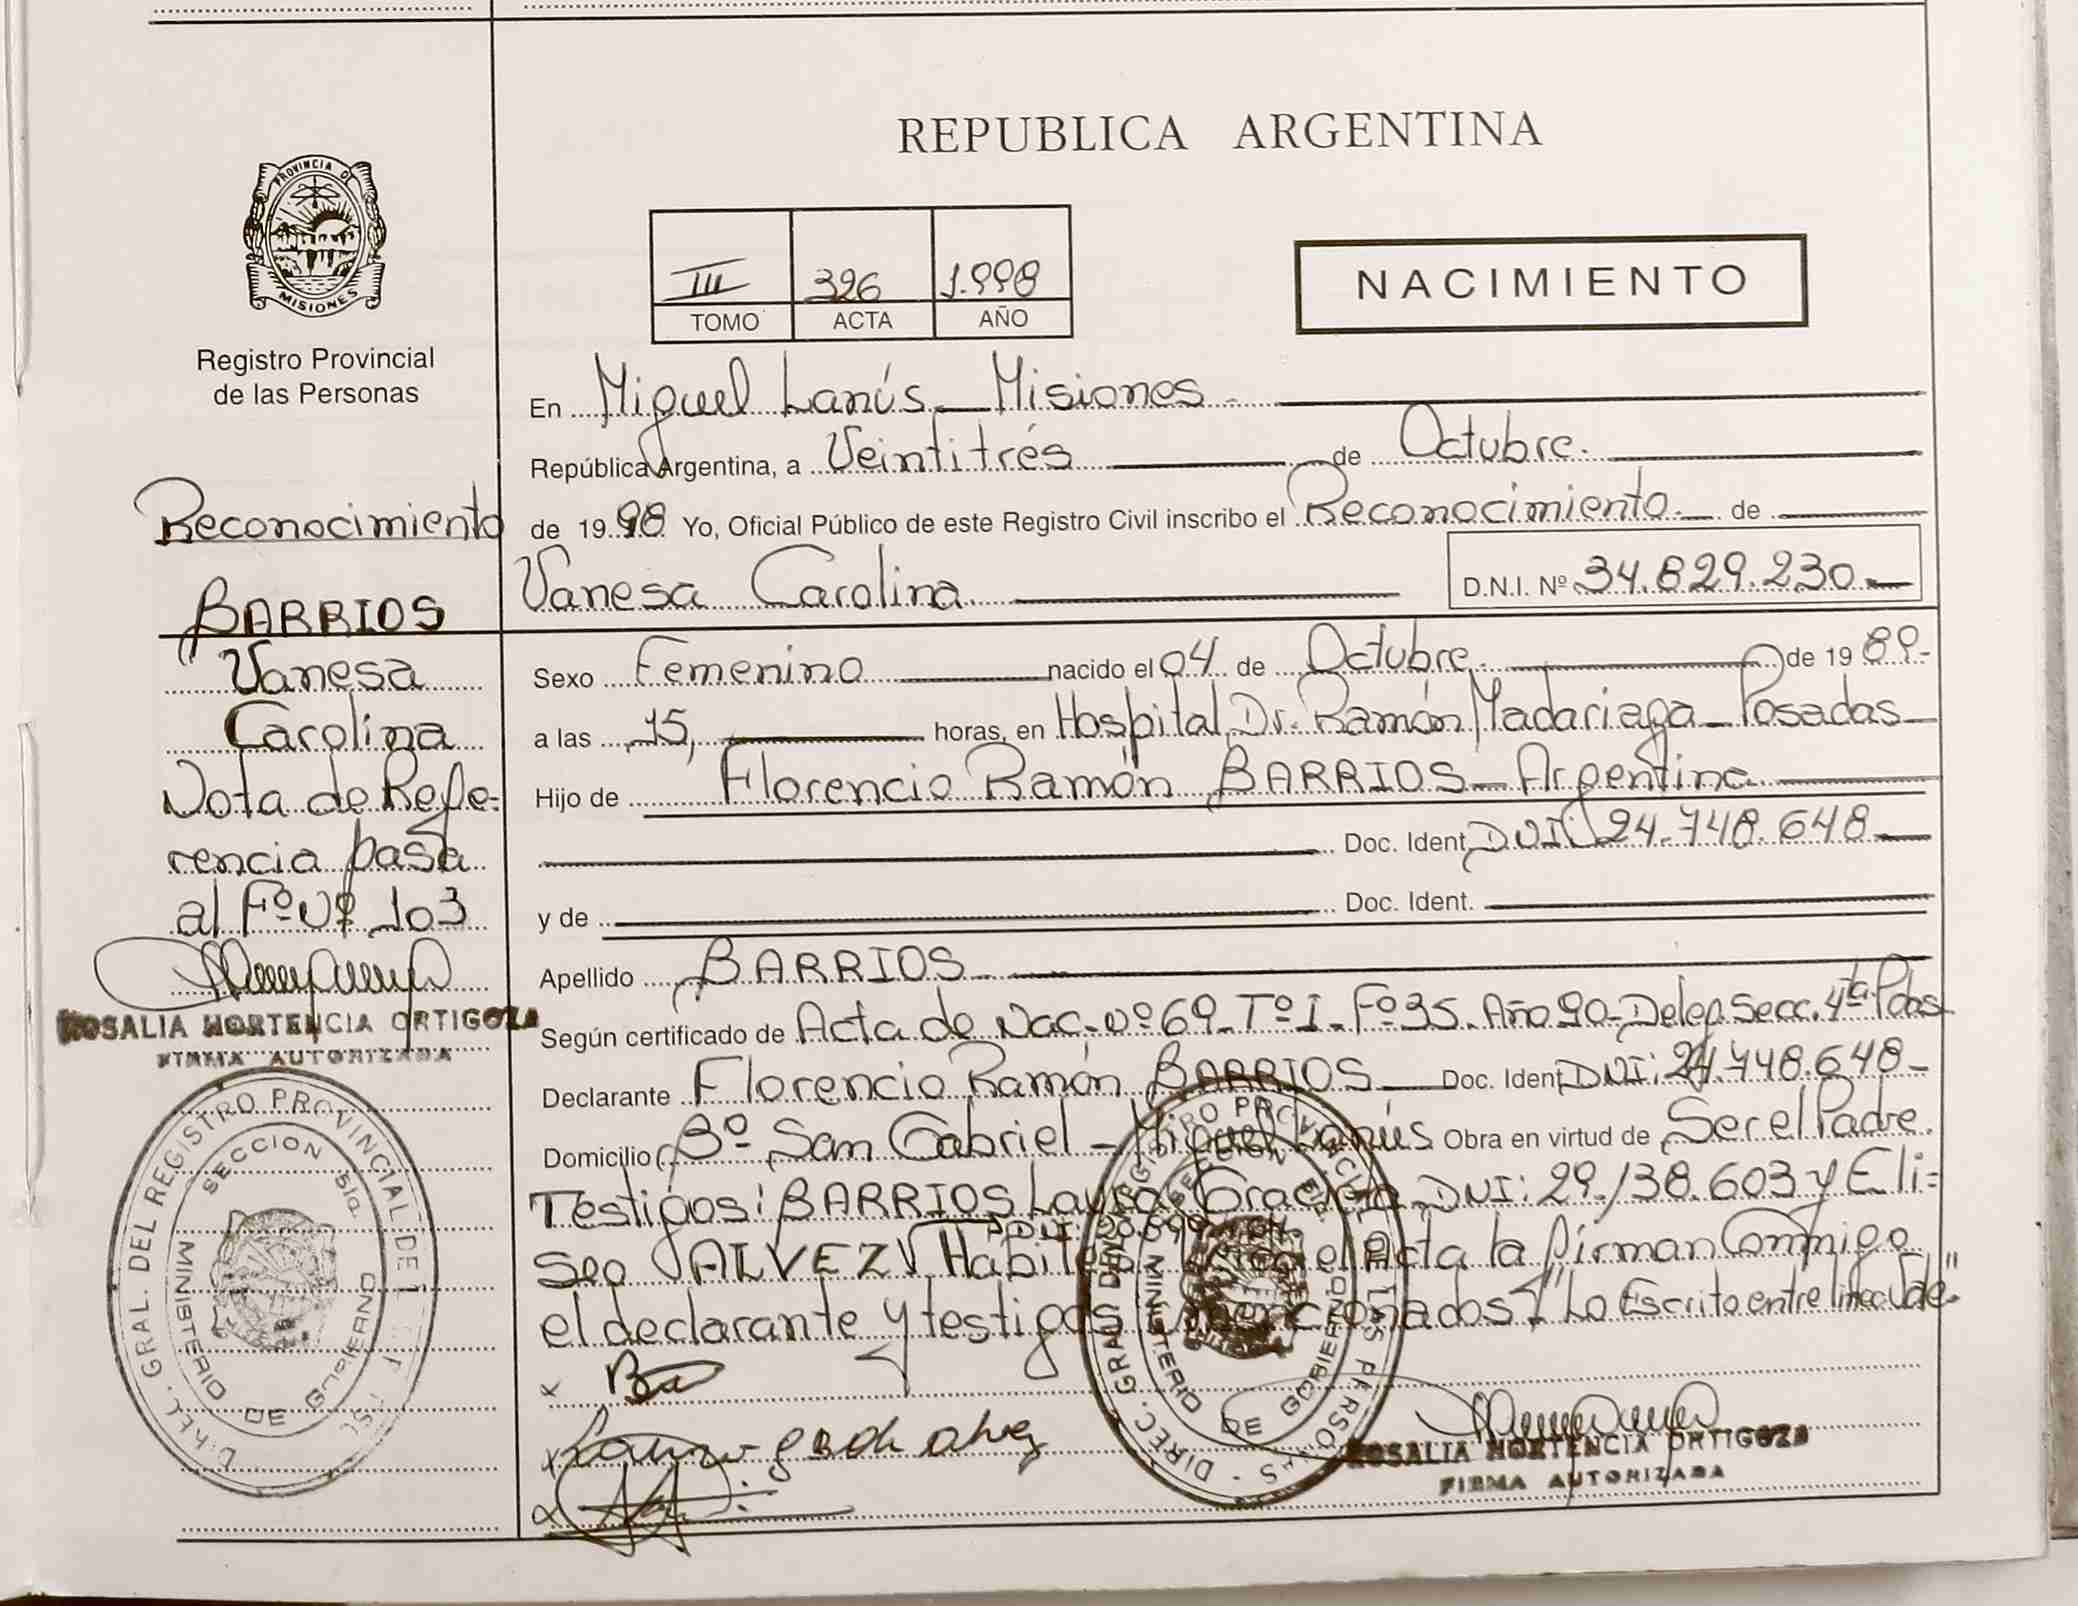 REPUBLICA ARGENTINA
PROVINCIA DE
MISIONES
Registro Provincial
de las Personas
III 326 1.998
TOMO ACTA AÑO
NACIMIENTO
En Miguel Lanús - Misiones
República Argentina, a Veintitrés de Octubre.
de 19 98 Yo, Oficial Público de este Registro Civil inscribo el Reconocimiento. de
Vanesa Carolina D.N.I. Nº 34.829.230.-
Sexo Femenino nacido el 04 de Octubre. de 19 89.-
a las 15, horas, en Hospital Dr. Ramón Madariaga - Posadas -
Hijo de Florencio Ramón BARRIOS - Argentina
Doc. Ident. DNI: 24.748.648 -
y de Doc. Ident.
Apellido BARRIOS
Según certificado de Acta de Nac. nº 69 - Tº I - Fº 35. Año 90 - Deleg. Secc. 4ta. Pdas
Declarante Florencio Ramón BARRIOS Doc. Ident. DNI: 24.748.648 -
Domicilio Bº San Gabriel - Miguel Lanús Obra en virtud de Ser el Padre.
Testigos: BARRIOS Laura Graciela DNI: 29.138.603 y Eli=
seo ALVEZ el Acta la firman Conmigo
el declarante y testigos mencionados "Lo Escrito entre linea Vale"
Reconocimiento
BARRIOS
Vanesa
Carolina
Nota de Refe-
rencia pasa
al Fº Nº 103
ROSALIA HORTENCIA ORTIGOZA
FIRMA AUTORIZADA
DIREC. GRAL. DEL REGISTRO PROVINCIAL DE
SECCION 5ta.
MINISTERIO DE GOBIERNO
DIREC. GRAL. DEL REGISTRO PROVINCIAL DE LAS PERSONAS
MINISTERIO DE GOBIERNO
ROSALIA HORTENCIA ORTIGOZA
FIRMA AUTORIZADA